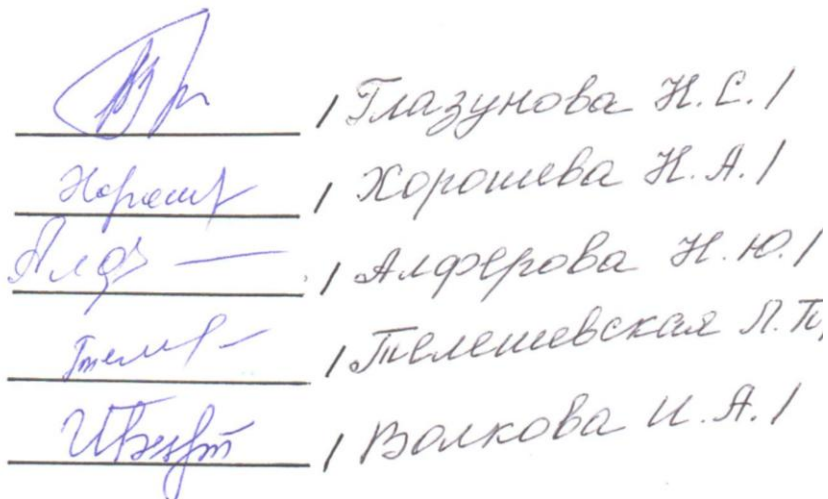 / Глазунова Н. С. /
/ Хорошева Н. А. /
/ Алферова Н. Ю. /
/ Телешевская Л. П.
/ Волкова И. А. /